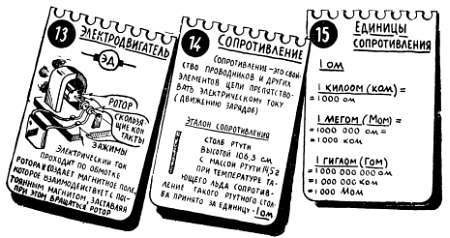 13
ЭЛЕКТРОДВИГАТЕЛЬ
ЭД
РОТОР
СКОЛЬЗЯ-
ЩИЕ КОН-
ТАКТЫ
ЗАЖИМЫ
ЭЛЕКТРИЧЕСКИЙ ТОК
ПРОХОДИТ ПО ОБМОТКЕ
РОТОРА И СОЗДАЕТ МАГНИТНОЕ ПОЛЕ,
КОТОРОЕ ВЗАИМОДЕЙСТВУЕТ С ПОС-
ТОЯННЫМ МАГНИТОМ, ЗАСТАВЛЯЯ
ПРИ ЭТОМ ВРАЩАТЬСЯ РОТОР
14
СОПРОТИВЛЕНИЕ
СОПРОТИВЛЕНИЕ - ЭТО СВОЙ-
СТВО ПРОВОДНИКОВ И ДРУГИХ
ЭЛЕМЕНТОВ ЦЕПИ ПРЕПЯТСТВО-
ВАТЬ ЭЛЕКТРИЧЕСКОМУ ТОКУ
(ДВИЖЕНИЮ ЗАРЯДОВ)
ЭТАЛОН СОПРОТИВЛЕНИЯ
СТОЛБ РТУТИ
ВЫСОТОЙ 106,3 СМ
С МАССОЙ РТУТИ 14,5 г
ПРИ ТЕМПЕРАТУРЕ ТА-
ЮЩЕГО ЛЬДА СОПРОТИВ-
ЛЕНИЕ ТАКОГО РТУТНОГО СТОЛ-
БА ПРИНЯТО ЗА ЕДИНИЦУ - 1 ОМ
15
ЕДИНИЦЫ
СОПРОТИВЛЕНИЯ
1 ОМ
1 КИЛООМ (КОМ) =
= 1000 ОМ
1 МЕГОМ (МОМ) =
= 1000 000 ОМ =
= 1000 КОМ
1 ГИГАОМ (ГОМ)
= 1 000 000 000 ОМ
= 1 000 000 КОМ
= 1000 МОМ